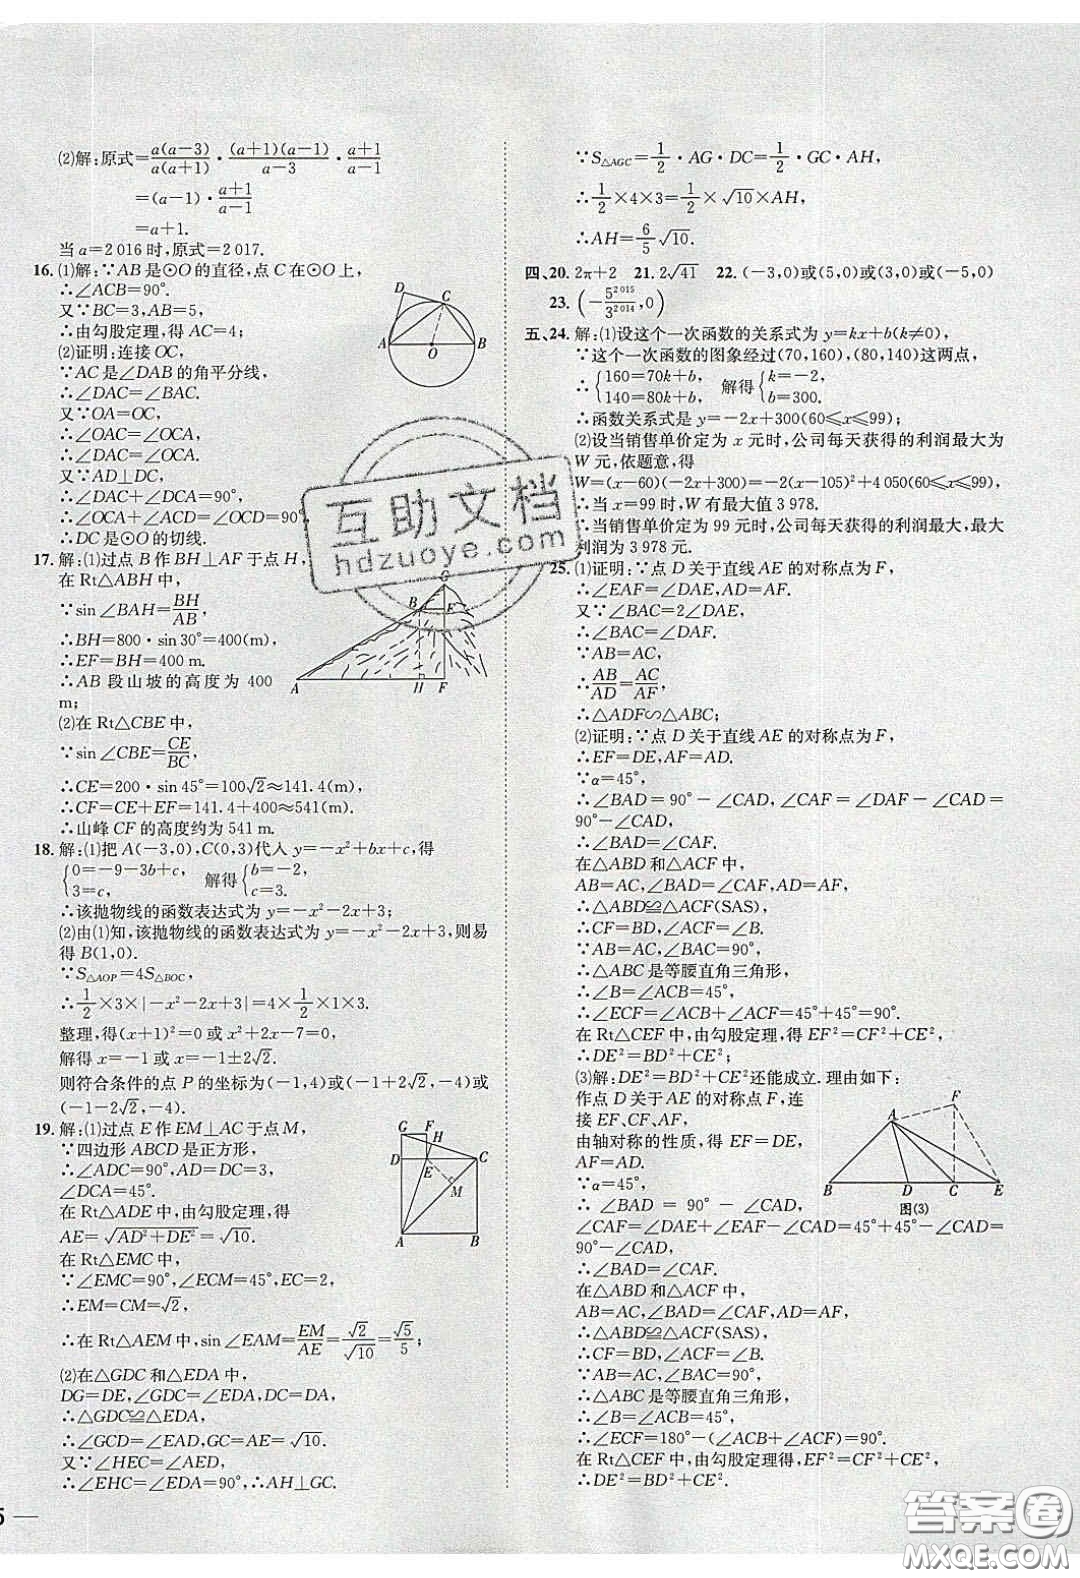 (2)解:原式=a(a-3)/a(a+1)·(a+1)(a-1)/a-3·a+1/a-1
=(a-1)·a+1/a-1
=a+1.
当a=2 016时,原式=2 017.
16.(1)解:∵AB是⊙O的直径,点C在⊙O上,
∴∠ACB=90°.
又∵BC=3,AB=5,
∴由勾股定理,得AC=4;
(2)证明:连接OC,
∵AC是∠DAB的角平分线,
∴∠DAC=∠BAC.
又∵OA=OC,
∴∠OAC=∠OCA,
∴∠DAC=∠OCA.
又∵AD⊥DC,
∴∠DAC+∠DCA=90°,
∴∠OCA+∠DCA=∠OCD=90°,
∴DC是⊙O的切线.
D
C
A
O
B
17.解:(1)过点B作BH⊥AF于点H,
在Rt△ABH中,
∵sin∠BAH=BH/AB,
∴BH=800·sin 30°=400(m),
∴EF=BH=400 m.
∴AB段山坡的高度为400
m;
(2)在Rt△CBE中,
∵sin∠CBE=CE/BC,
∴CE=200·sin 45°=100√2≈141.4(m).
∴CF=CE+EF=141.4+400≈541(m).
∴山峰CF的高度约为541 m.
C
B
E
A
H
F
18.解:(1)把A(-3,0),C(0,3)代入y=-x²+bx+c,得
{0=-9-3b+c, 3=c, 解得{b=-2, c=3.
∴该抛物线的函数表达式为y=-x²-2x+3;
(2)由(1)知,该抛物线的函数表达式为y=-x²-2x+3,则易
得B(1,0).
∵S△AOP=4S△BOC,
∴1/2×3×|-x²-2x+3|=4×1/2×1×3.
整理,得(x+1)²=0或x²+2x-7=0,
解得x=-1或x=-1±2√2.
则符合条件的点P的坐标为(-1,4)或(-1+2√2,-4)或
(-1-2√2,-4).
19.解:(1)过点E作EM⊥AC于点M,
∵四边形ABCD是正方形,
∴∠ADC=90°,AD=DC=3,
∠DCA=45°.
在Rt△ADE中,由勾股定理,得
AE=√AD²+DE²=√10.
在Rt△EMC中,
∵∠EMC=90°,∠ECM=45°,EC=2,
∴EM=CM=√2,
∴在Rt△AEM中,sin∠EAM=EM/AE=√2/√10=√5/5;
(2)在△GDC和△EDA中,
DG=DE,∠GDC=∠EDA,DC=DA,
∴△GDC≌△EDA,
∴∠GCD=∠EAD,GC=AE=√10.
又∵∠HEC=∠AED,
∴∠EHC=∠EDA=90°,∴AH⊥GC.
G
F
H
D
E
C
M
A
B
∵S△AGC=1/2·AG·DC=1/2·GC·AH,
∴1/2×4×3=1/2×√10×AH,
∴AH=6/5√10.
四、20.2π+2 21.2√41 22.(-3,0)或(5,0)或(3,0)或(-5,0)
23.(-5²⁰¹⁵/3²⁰¹⁴,0)
五、24.解:(1)设这个一次函数的关系式为y=kx+b(k≠0)
∵这个一次函数的图象经过(70,160),(80,140)这两点,
∴{160=70k+b, 140=80k+b, 解得{k=-2, b=300.
∴函数关系式是y=-2x+300(60≤x≤99);
(2)设当销售单价定为x元时,公司每天获得的利润最大为
W元,依题意,得
W=(x-60)(-2x+300)=-2(x-105)²+4 050(60≤x≤99),
∴当x=99时,W有最大值3 978.
∴当销售单价定为99元时,公司每天获得的利润最大,最大
利润为3 978元.
25.(1)证明:∵点D关于直线AE的对称点为F,
∴∠EAF=∠DAE,AD=AF.
又∵∠BAC=2∠DAE,
∴∠BAC=∠DAF.
∵AB=AC,
∴AB/AD=AC/AF,
∴△ADF∽△ABC;
(2)证明:∵点D关于直线AE的对称点为F,
∴EF=DE,AF=AD.
∵α=45°,
∴∠BAD=90°-∠CAD,∠CAF=∠DAF-∠CAD=
90°-∠CAD.
∴∠BAD=∠CAF.
在△ABD和△ACF中,
AB=AC,∠BAD=∠CAF,AD=AF,
∴△ABD≌△ACF(SAS).
∴CF=BD,∠ACF=∠B.
∵AB=AC,∠BAC=90°,
∴△ABC是等腰直角三角形,
∴∠B=∠ACB=45°,
∴∠ECF=∠ACB+∠ACF=45°+45°=90°.
在Rt△CEF中,由勾股定理,得EF²=CF²+CE²,
∴DE²=BD²+CE²;
(3)解:DE²=BD²+CE²还能成立.理由如下:
作点D关于AE的对称点F,连
接EF、CF、AF,
由轴对称的性质,得EF=DE,
AF=AD.
∵α=45°,
∴∠BAD=90°-∠CAD,
∠CAF=∠DAE+∠EAF-∠CAD=45°+45°-∠CAD=
90°-∠CAD,
∴∠BAD=∠CAF.
在△ABD和△ACF中,
AB=AC,∠BAD=∠CAF,AD=AF,
∴△ABD≌△ACF(SAS).
∴CF=BD,∠ACF=∠B.
∵AB=AC,∠BAC=90°,
∴△ABC是等腰直角三角形,
∴∠B=∠ACB=45°,
∴∠ECF=180°-(∠ACB+∠ACF)=90°.
在Rt△CEF中,由勾股定理,得EF²=CF²+CE²,
∴DE²=BD²+CE².
F
A
B
D
C
E
图(3)
互助文档
hdzuoye.com
答案圈
MXQE.COM